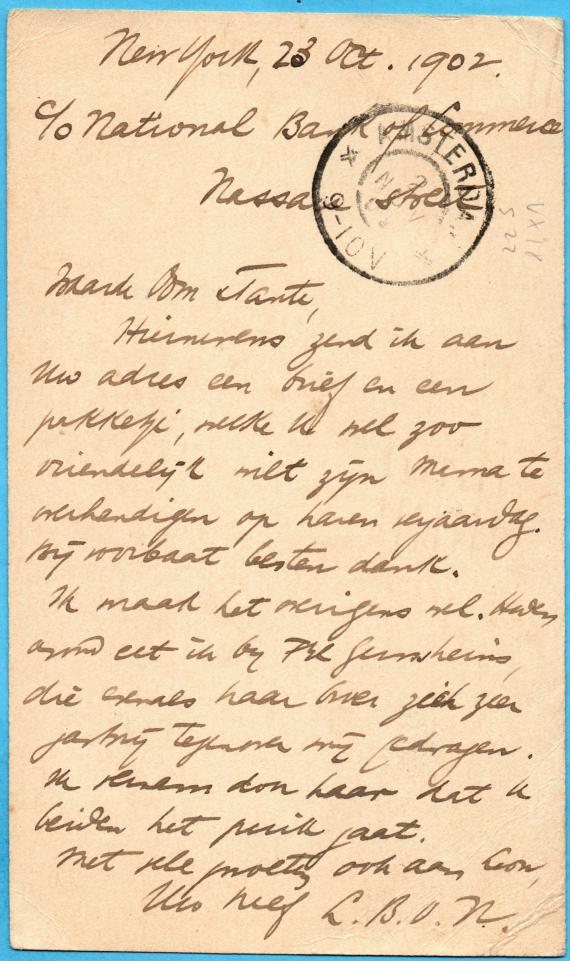 New York, 23 Oct. 1902.
c/o National Bank of Commerce
Nassau Street
AMSTERDAM
NOV
6-10N
225
Waarde Oom & Tante,
Hiernevens zend ik aan
Uw adres een brief en een
pakketje, welke U wel zoo
vriendelijk wilt zijn Mama te
overhandigen op haren verjaardag.
Bij voorbaat besten dank.
Ik maak het overigens wel. Heden
avond eet ik bij Gunsheins,
die evenals haar broer zich zeer
tegenover mij gedragen.
Ik vernam van haar dat U
beiden het goed gaat.
Met vele groeten, ook aan Leon,
Uw neef L. B. O. N.